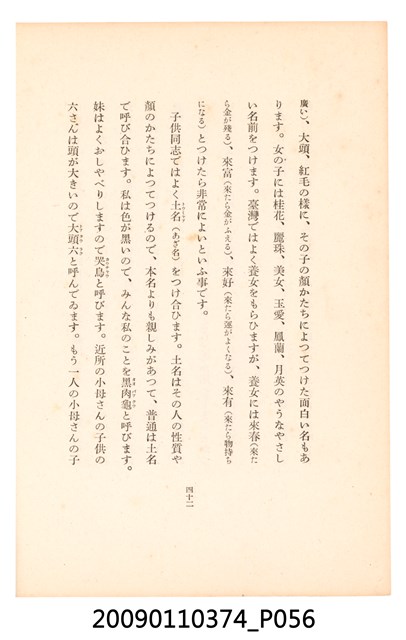 廣い)、大頭、紅毛の樣に、その子の顏かたちによつてつけた面白い名もあ
ります。女の子には桂花、麗珠、美女、玉愛、鳳蘭、月英のやうなやさし
い名前をつけます。臺灣ではよく養女をもらひますが、養女には來春(來た
ら金が殘る)、來富(來たら金がふえる)、來好(來たら運がよくなる)、來有(來たら物持ち
になる)とつけたら非常によいといふ事です。
子供同志ではよく土名(あざ名)をつけ合ひます。土名はその人の性質や
顏のかたちによつてつけるので、本名よりも親しみがあつて、普通は土名
で呼び合ひます。私は色が黑いので、みんな私のことを黑肉龜と呼びます。
妹はよくおしやべりしますので哭鳥と呼びます。近所の小母さんの子供の
六さんは頭が大きいので大頭六と呼んでゐます。もう一人の小母さんの子
四十二
20090110374_P056